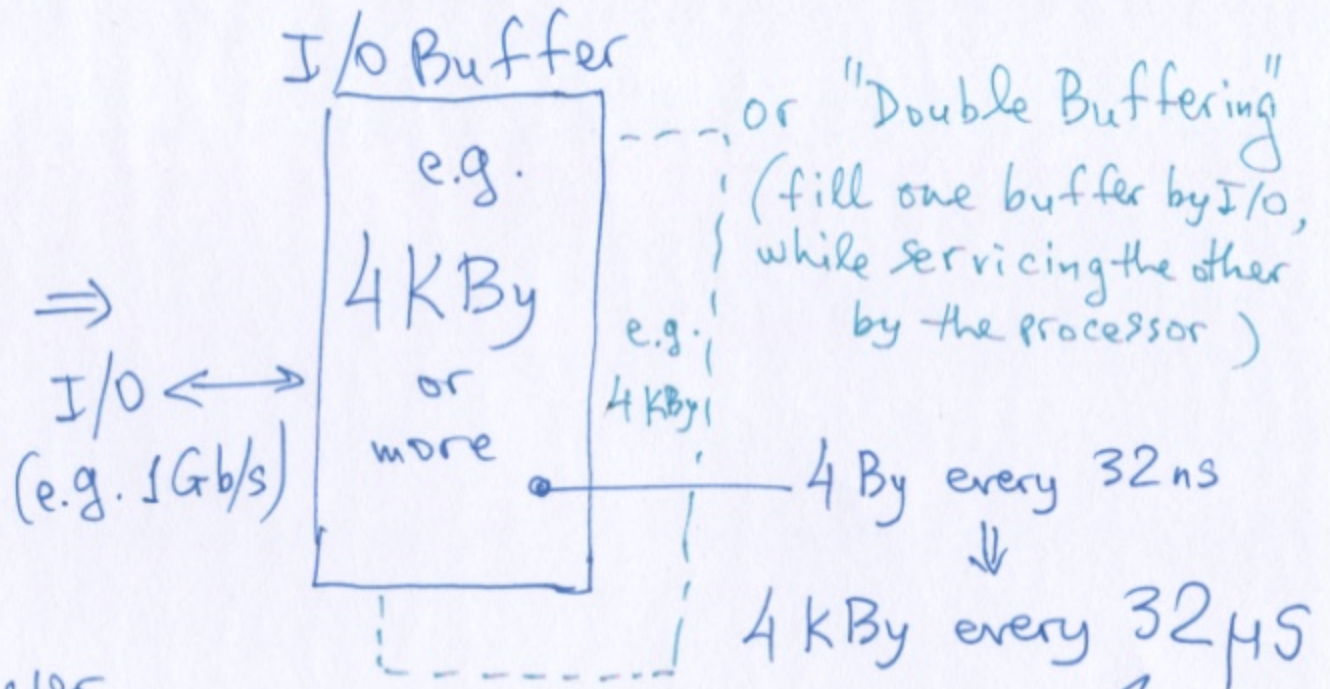 I/O Buffer
e.g.
4KBy
or
more
⇒
I/O ↔
(e.g. 1Gb/s)
or "Double Buffering"
(fill one buffer by I/O,
while servicing the other
by the processor)
e.g.
4 KBy
4 By every 32ns
⇓
4 kBy every 32μs